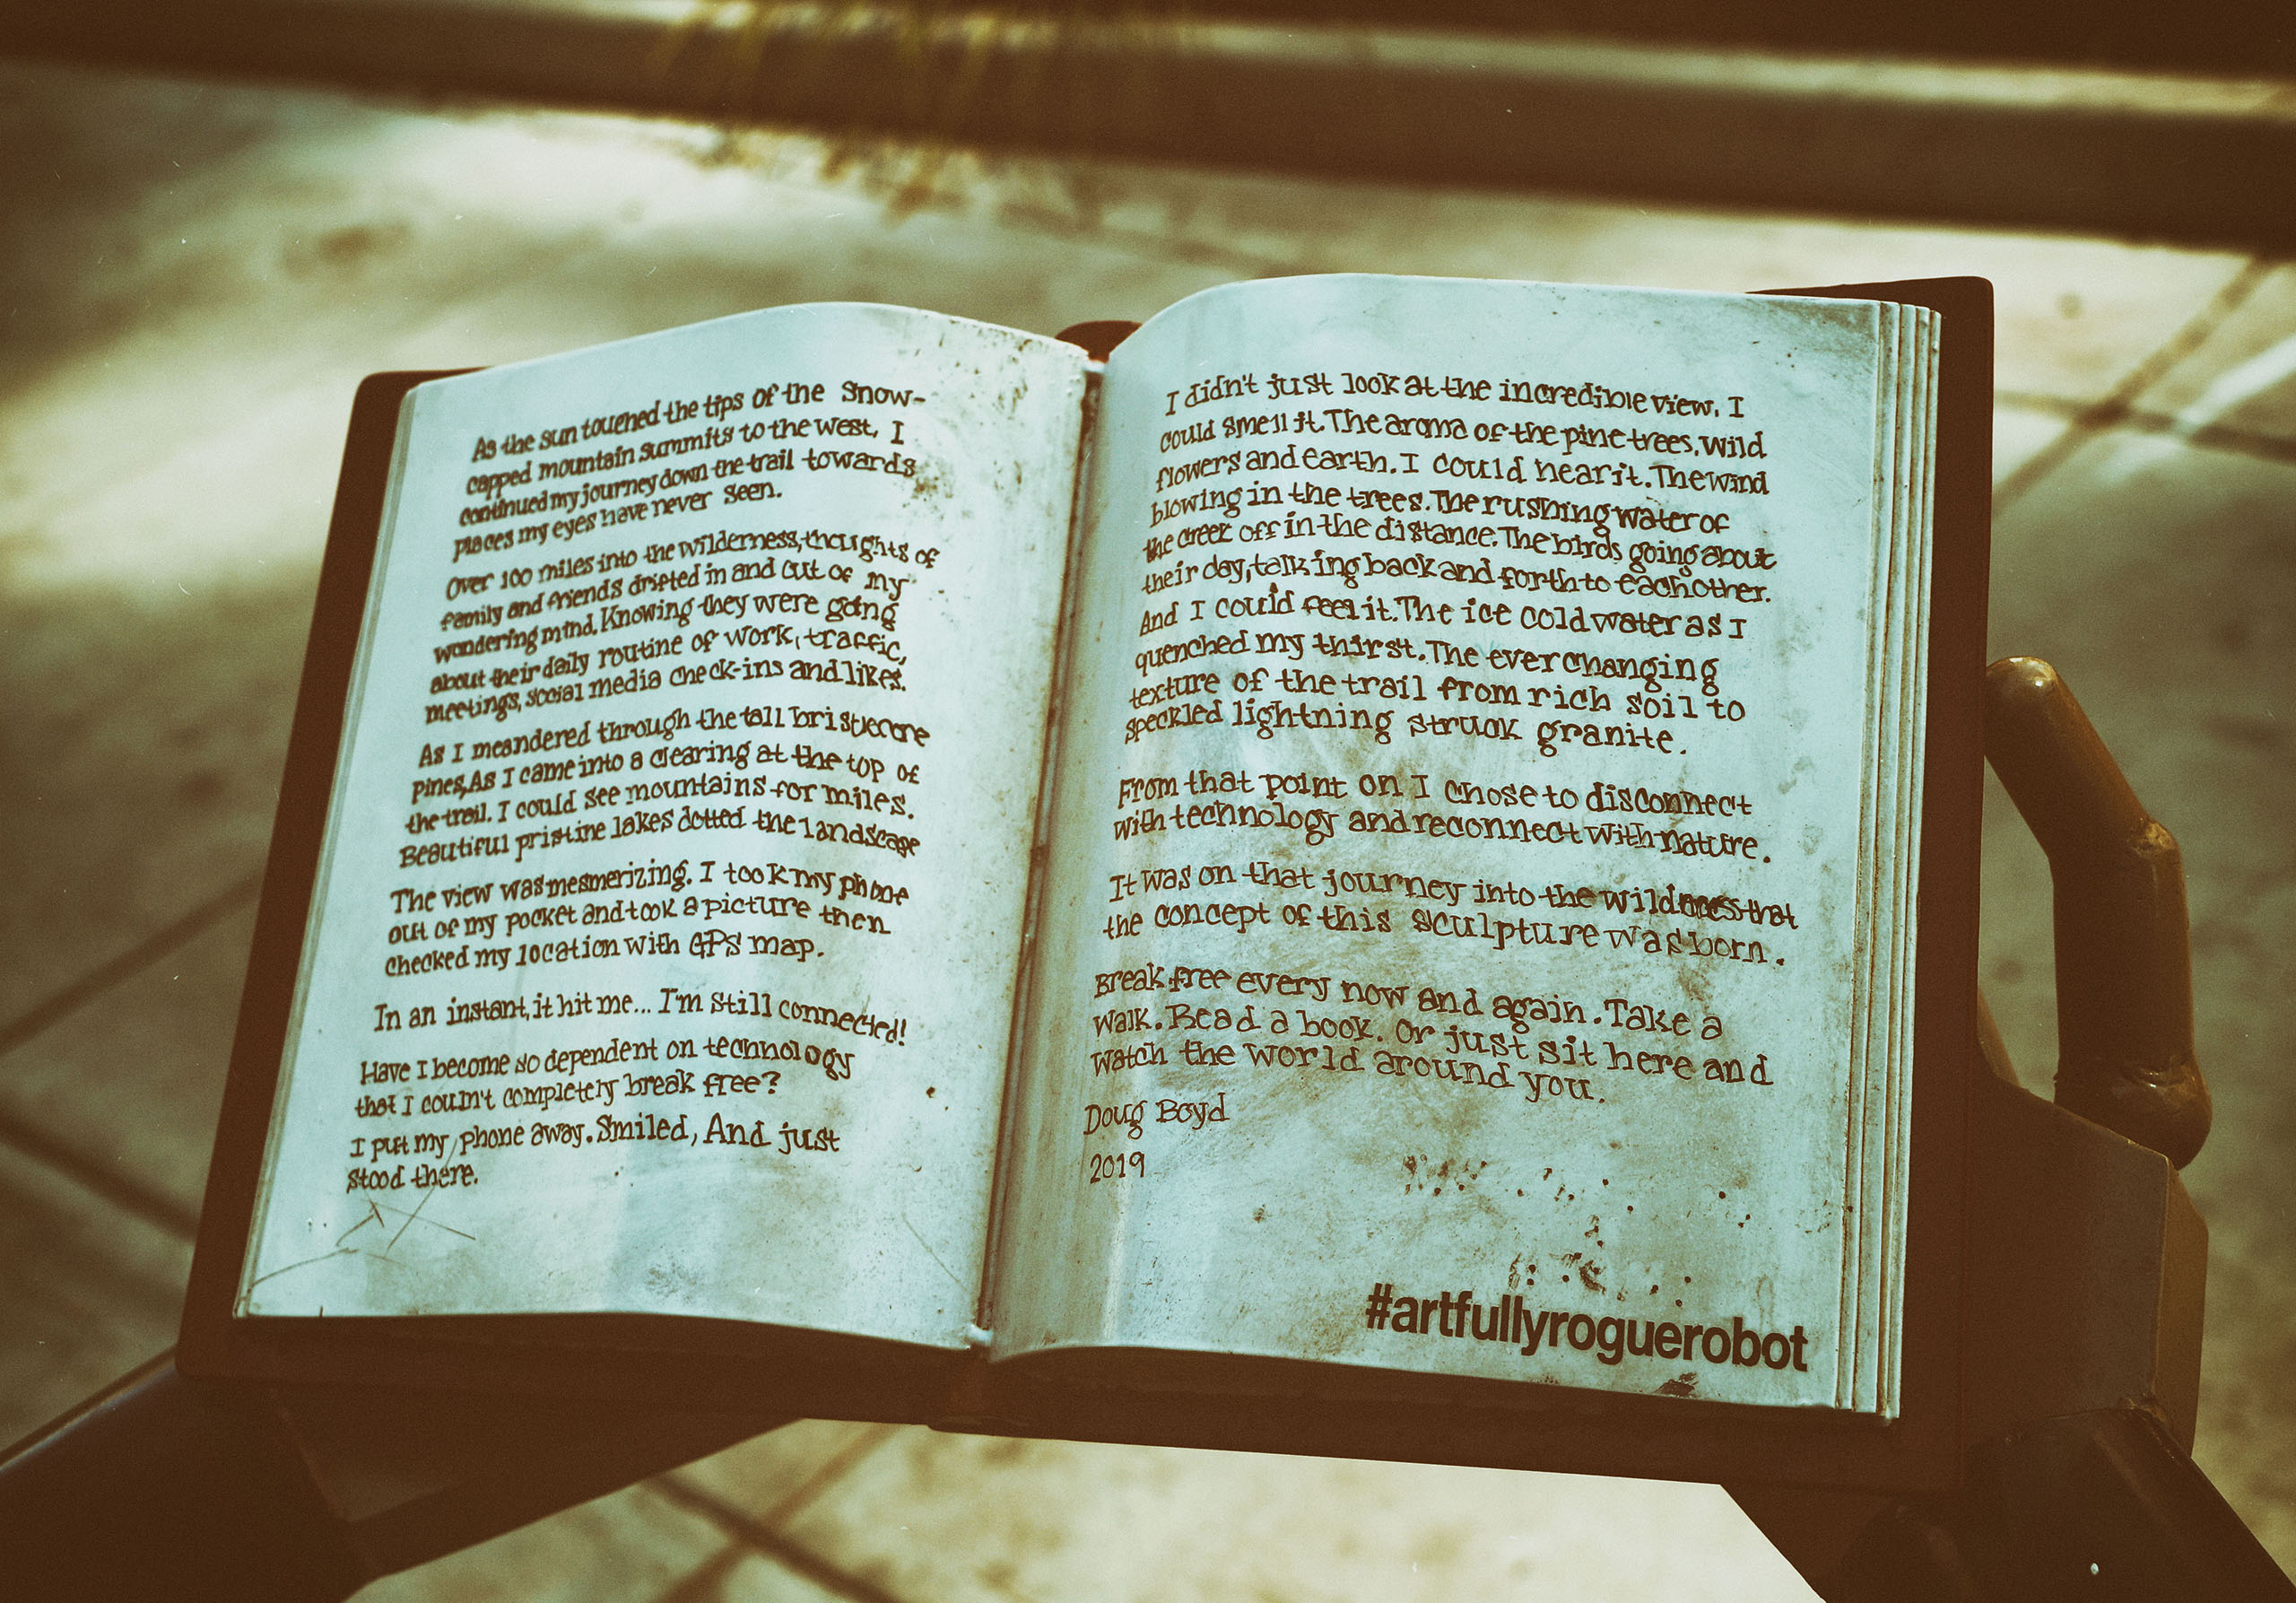 As the sun touched the tips of the snow-
capped mountain summits to the west, I
continued my journey down the trail towards
places my eyes have never seen.
Over 100 miles into the wilderness, thoughts of
family and friends drifted in and out of my
wondering mind. Knowing they were going
about their daily routine of work, traffic,
meetings, social media check-ins and likes.
As I meandered through the tall bristlecone
pines, As I came into a clearing at the top of
the trail. I could see mountains for miles.
Beautiful pristine lakes dotted the landscape
The view was mesmerizing. I took my phone
out of my pocket and took a picture then
checked my location with GPS map.
In an instant, it hit me... I'm still connected!
Have I become so dependent on technology
that I couln't completely break free?
I put my phone away. Smiled, And just
stood there.
I didn't just look at the incredible view. I
could smell it. The aroma of the pine trees, wild
flowers and earth. I could hear it. The wind
blowing in the trees. The rushing water of
the creek off in the distance. The birds going about
their day, talking back and forth to each other.
And I could feel it. The ice cold water as I
quenched my thirst. The ever changing
texture of the trail from rich soil to
speckled lightning struck granite.
From that point on I chose to disconnect
with technology and reconnect with nature.
It was on that journey into the wildness that
the concept of this sculpture was born.
Break free every now and again. Take a
walk. Read a book. Or just sit here and
watch the world around you.
Doug Boyd
2019
#artfullyroguerobot